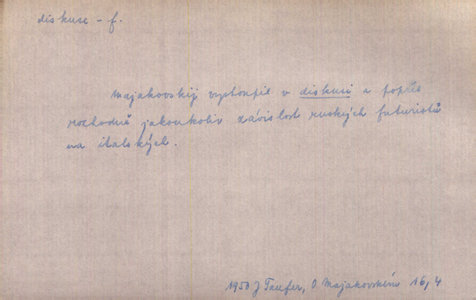 diskuse - f.
Majakovskij vystoupil v diskusi a popřel
rozhodně jakoukoliv závislost ruských futuristů
na italských.
1950 J Taufer, O Majakovském 16, 4